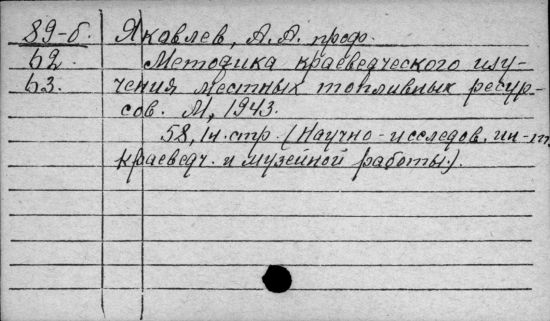 89-б. Яковлев, А.А. проф.
62. Методика краеведческого изу-
63. чения местных топливных ресур-
сов. М, 1943.
58, 1н. стр. (Научно-исследов. ин-т
краеведч. и музейной работы.).